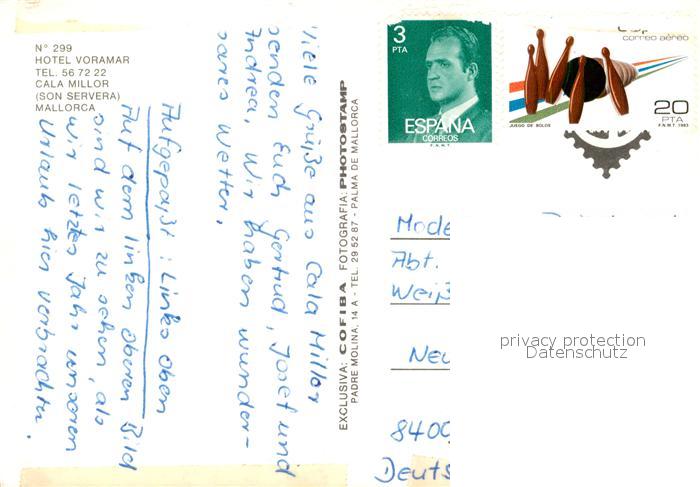 N° 299
HOTEL VORAMAR
TEL. 56 72 22
CALA MILLOR
(SON SERVERA)
MALLORCA
Viele Grüße aus Cala Millor
senden Euch Gertrud, Josef und
Andrea. Wir haben wunder-
bares Wetter.
Aufgepaßt: Links oben
Auf dem linken oberen Bild
sind wir zu sehen, als
wir letztes Jahr unseren
Urlaub hier verbrachten.
EXCLUSIVA: COFIBA FOTOGRAFIA: PHOTOSTAMP
PADRE MOLINA, 14 A - TEL. 29 52 87 - PALMA DE MALLORCA
3
PTA
ESPAÑA
CORREOS
F.N.M.T.
correo aéreo
20
PTA
JUEGO DE BOLOS
F.N.M.T. 1983
Mode
Abt.
Weiß
Neu
8400
Deuts
privacy protection
Datenschutz